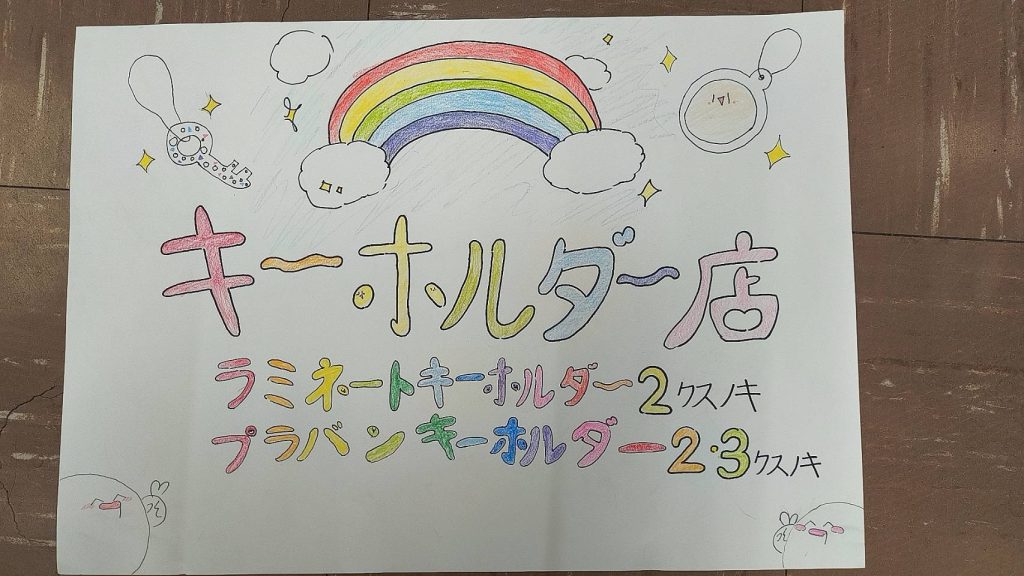 キーホルダー店
ラミネートキーホルダー2クスノキ
プラバンキーホルダー2・3クスノキ